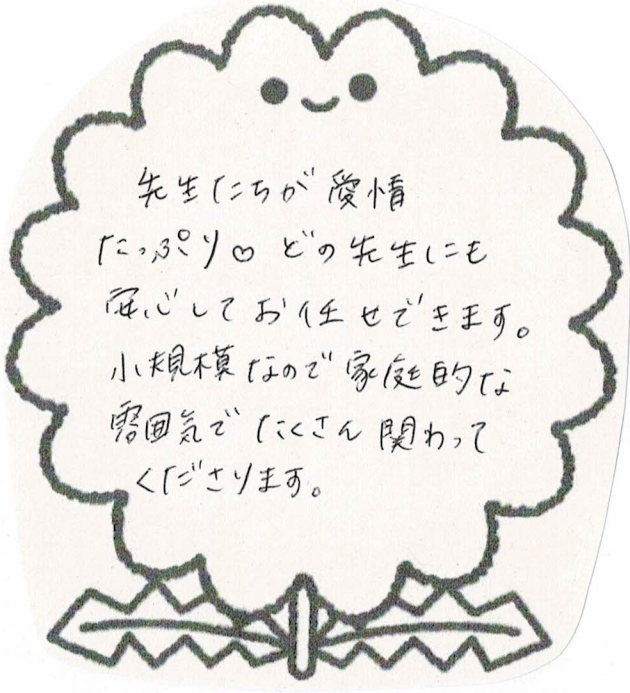 先生たちが愛情
たっぷり♡どの先生にも
安心してお任せできます。
小規模なので家庭的な
雰囲気でたくさん関わって
くださります。